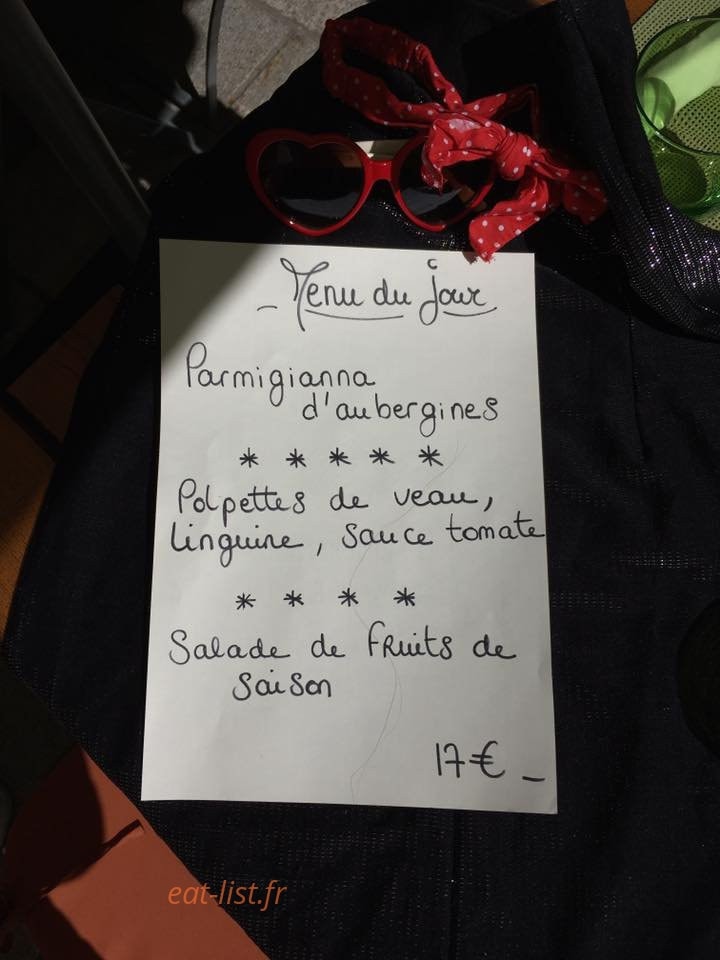 – Menu du jour
Parmigianna
d'aubergines
* * * * *
Polpettes de veau,
linguine, sauce tomate
* * * *
Salade de fruits de
saison
17€ –
eat-list.fr